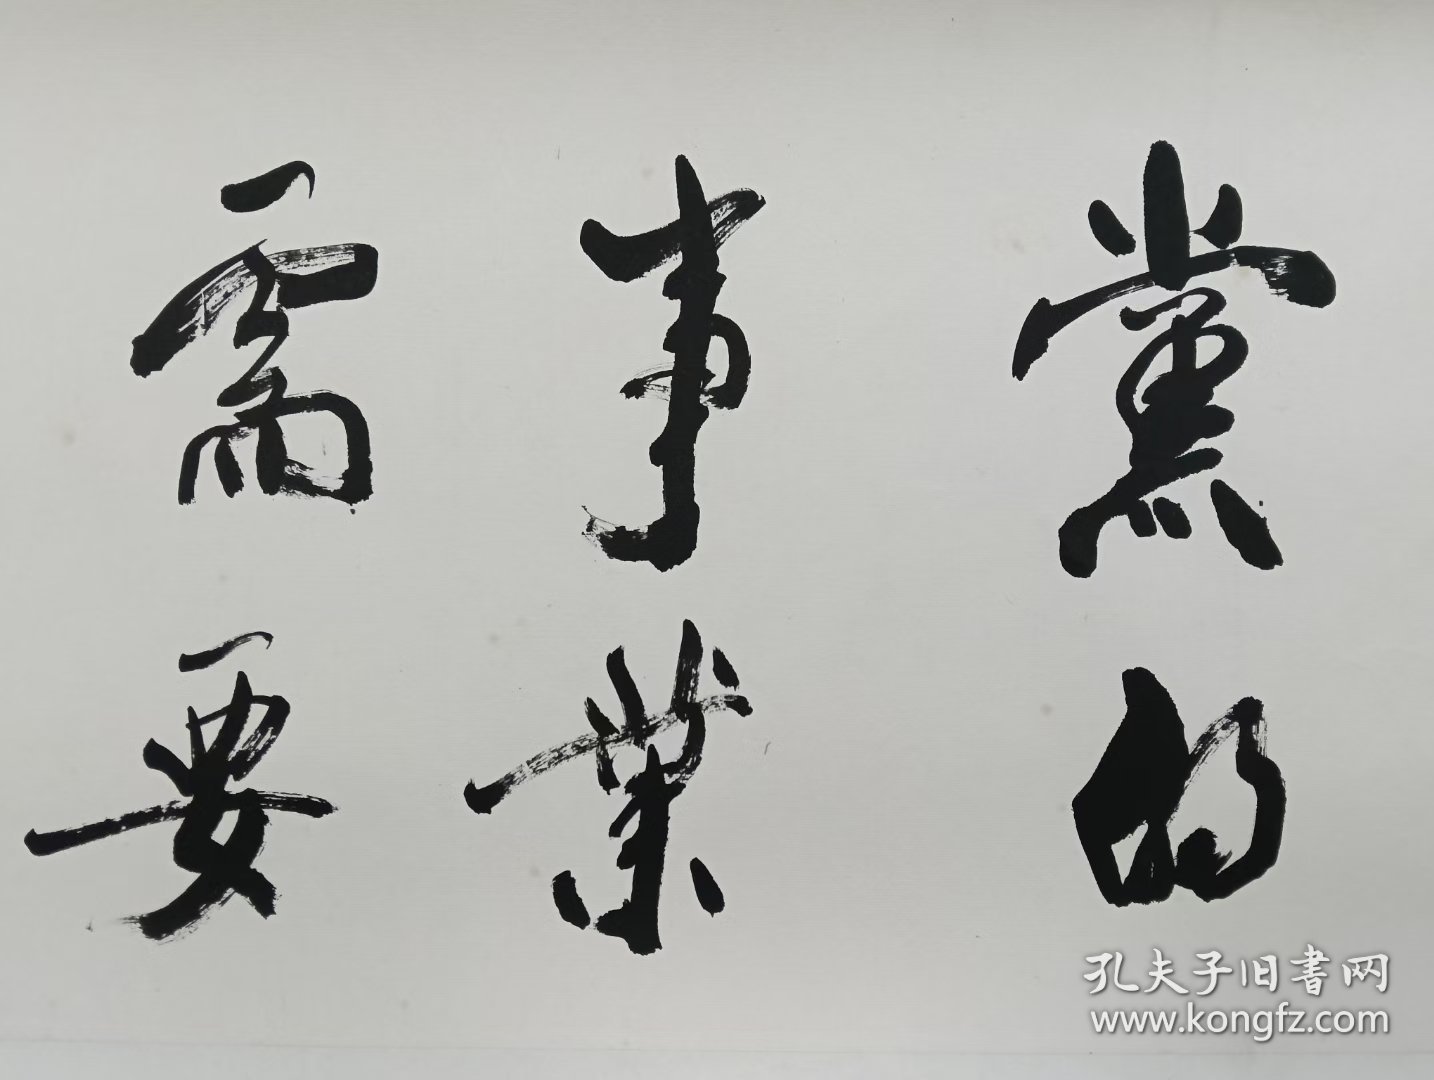 黨的
事業
需要
孔夫子旧書网
www.kongfz.com